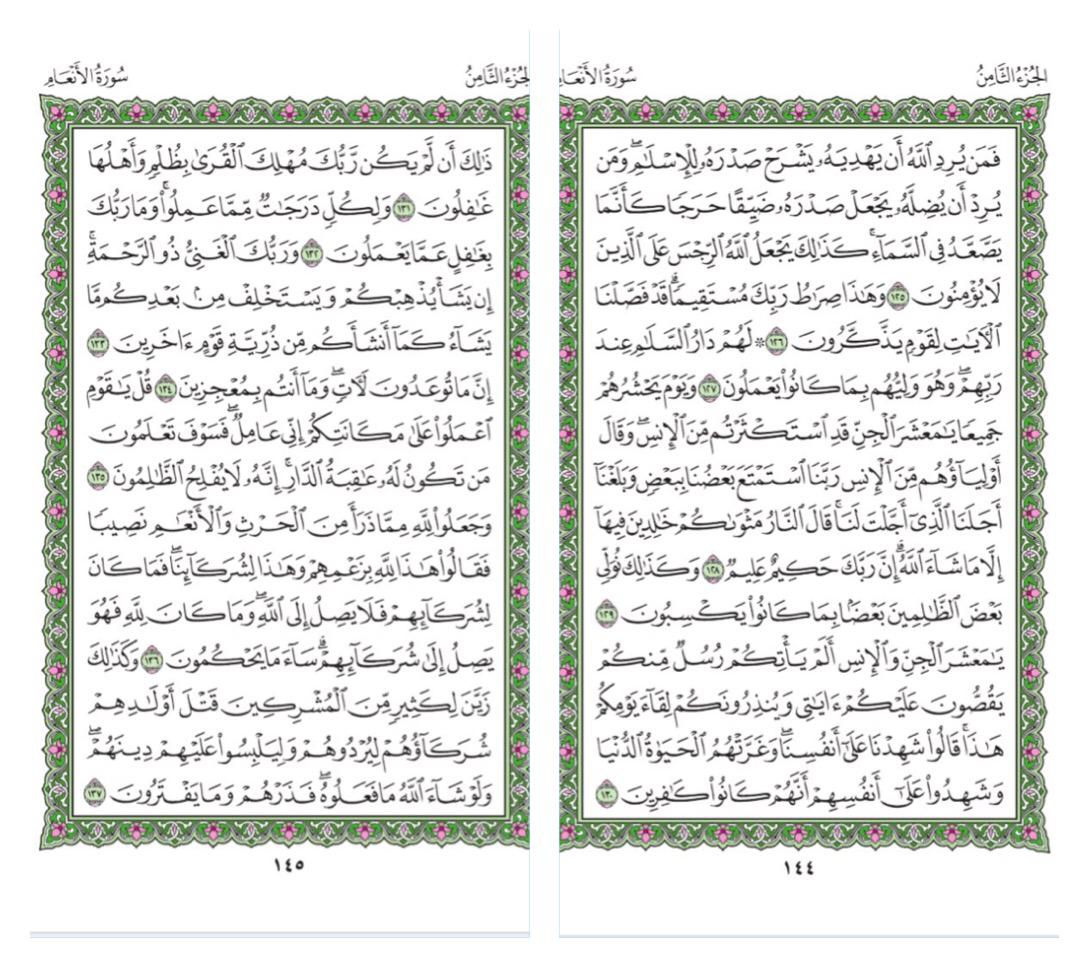 الجُزْءُ الثَّامِنُ
سُورَةُ الأَنْعَامِ
فَمَن يُرِدِ ٱللَّهُ أَن يَهْدِيَهُۥ يَشْرَحْ صَدْرَهُۥ لِلْإِسْلَـٰمِۖ وَمَن
يُرِدْ أَن يُضِلَّهُۥ يَجْعَلْ صَدْرَهُۥ ضَيِّقًا حَرَجًا كَأَنَّمَا
يَصَّعَّدُ فِى ٱلسَّمَآءِۚ كَذَٰلِكَ يَجْعَلُ ٱللَّهُ ٱلرِّجْسَ عَلَى ٱلَّذِينَ
لَا يُؤْمِنُونَ ١٢٥ وَهَـٰذَا صِرَٰطُ رَبِّكَ مُسْتَقِيمًاۗ قَدْ فَصَّلْنَا
ٱلْـَٔايَـٰتِ لِقَوْمٍ يَذَّكَّرُونَ ١٢٦ ۞ لَهُمْ دَارُ ٱلسَّلَـٰمِ عِندَ
رَبِّهِمْۖ وَهُوَ وَلِيُّهُم بِمَا كَانُوا۟ يَعْمَلُونَ ١٢٧ وَيَوْمَ يَحْشُرُهُمْ
جَمِيعًا يَـٰمَعْشَرَ ٱلْجِنِّ قَدِ ٱسْتَكْثَرْتُم مِّنَ ٱلْإِنسِۖ وَقَالَ
أَوْلِيَآؤُهُم مِّنَ ٱلْإِنسِ رَبَّنَا ٱسْتَمْتَعَ بَعْضُنَا بِبَعْضٍ وَبَلَغْنَآ
أَجَلَنَا ٱلَّذِىٓ أَجَّلْتَ لَنَاۚ قَالَ ٱلنَّارُ مَثْوَىٰكُمْ خَـٰلِدِينَ فِيهَآ
إِلَّا مَا شَآءَ ٱللَّهُۗ إِنَّ رَبَّكَ حَكِيمٌ عَلِيمٌ ١٢٨ وَكَذَٰلِكَ نُوَلِّى
بَعْضَ ٱلظَّـٰلِمِينَ بَعْضًۢا بِمَا كَانُوا۟ يَكْسِبُونَ ١٢٩
يَـٰمَعْشَرَ ٱلْجِنِّ وَٱلْإِنسِ أَلَمْ يَأْتِكُمْ رُسُلٌ مِّنكُمْ
يَقُصُّونَ عَلَيْكُمْ ءَايَـٰتِى وَيُنذِرُونَكُمْ لِقَآءَ يَوْمِكُمْ
هَـٰذَاۚ قَالُوا۟ شَهِدْنَا عَلَىٰٓ أَنفُسِنَاۖ وَغَرَّتْهُمُ ٱلْحَيَوٰةُ ٱلدُّنْيَا
وَشَهِدُوا۟ عَلَىٰٓ أَنفُسِهِمْ أَنَّهُمْ كَانُوا۟ كَـٰفِرِينَ ١٣٠
١٤٤
الجُزْءُ الثَّامِنُ
سُورَةُ الأَنْعَامِ
ذَٰلِكَ أَن لَّمْ يَكُن رَّبُّكَ مُهْلِكَ ٱلْقُرَىٰ بِظُلْمٍ وَأَهْلُهَا
غَـٰفِلُونَ ١٣١ وَلِكُلٍّ دَرَجَـٰتٌ مِّمَّا عَمِلُوا۟ۚ وَمَا رَبُّكَ
بِغَـٰفِلٍ عَمَّا يَعْمَلُونَ ١٣٢ وَرَبُّكَ ٱلْغَنِىُّ ذُو ٱلرَّحْمَةِۚ
إِن يَشَأْ يُذْهِبْكُمْ وَيَسْتَخْلِفْ مِنۢ بَعْدِكُم مَّا
يَشَآءُ كَمَآ أَنشَأَكُم مِّن ذُرِّيَّةِ قَوْمٍ ءَاخَرِينَ ١٣٣
إِنَّ مَا تُوعَدُونَ لَـَٔاتٍۖ وَمَآ أَنتُم بِمُعْجِزِينَ ١٣٤ قُلْ يَـٰقَوْمِ
ٱعْمَلُوا۟ عَلَىٰ مَكَانَتِكُمْ إِنِّى عَامِلٌۖ فَسَوْفَ تَعْلَمُونَ
مَن تَكُونُ لَهُۥ عَـٰقِبَةُ ٱلدَّارِۚ إِنَّهُۥ لَا يُفْلِحُ ٱلظَّـٰلِمُونَ ١٣٥
وَجَعَلُوا۟ لِلَّهِ مِمَّا ذَرَأَ مِنَ ٱلْحَرْثِ وَٱلْأَنْعَـٰمِ نَصِيبًا
فَقَالُوا۟ هَـٰذَا لِلَّهِ بِزَعْمِهِمْ وَهَـٰذَا لِشُرَكَآئِنَاۖ فَمَا كَانَ
لِشُرَكَآئِهِمْ فَلَا يَصِلُ إِلَى ٱللَّهِۖ وَمَا كَانَ لِلَّهِ فَهُوَ
يَصِلُ إِلَىٰ شُرَكَآئِهِمْۗ سَآءَ مَا يَحْكُمُونَ ١٣٦ وَكَذَٰلِكَ
زَيَّنَ لِكَثِيرٍ مِّنَ ٱلْمُشْرِكِينَ قَتْلَ أَوْلَـٰدِهِمْ
شُرَكَآؤُهُمْ لِيُرْدُوهُمْ وَلِيَلْبِسُوا۟ عَلَيْهِمْ دِينَهُمْۖ
وَلَوْ شَآءَ ٱللَّهُ مَا فَعَلُوهُۖ فَذَرْهُمْ وَمَا يَفْتَرُونَ ١٣٧
١٤٥